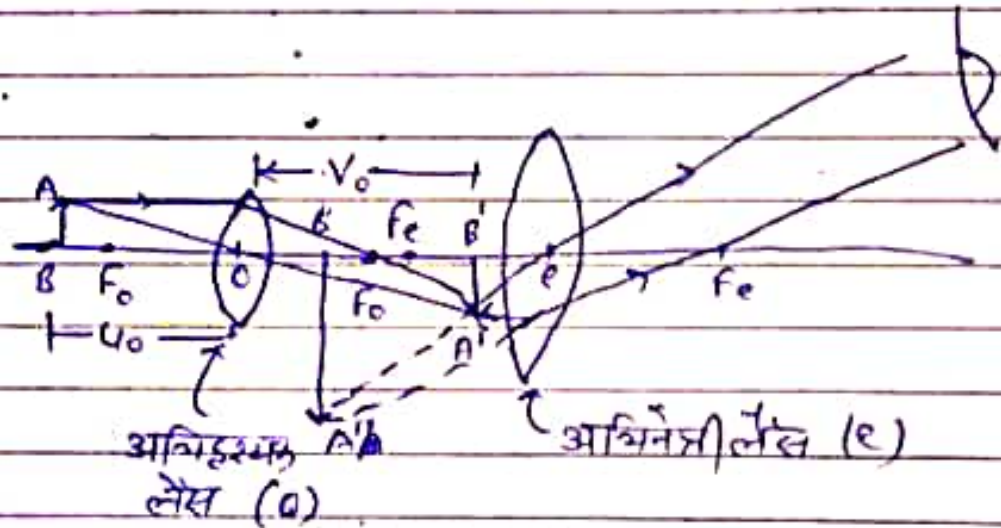 V₀
A
B' Fe B'
B F₀ O F₀ e Fe
u₀ A'
A"
अभिदृश्यक
लेंस (O)
अभिनेत्री लेंस (e)